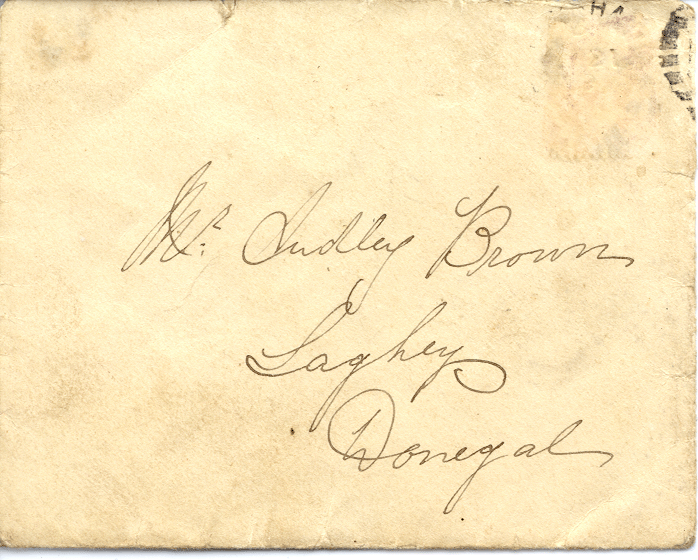 Mr. Audley Brown
Laghey
Donegal